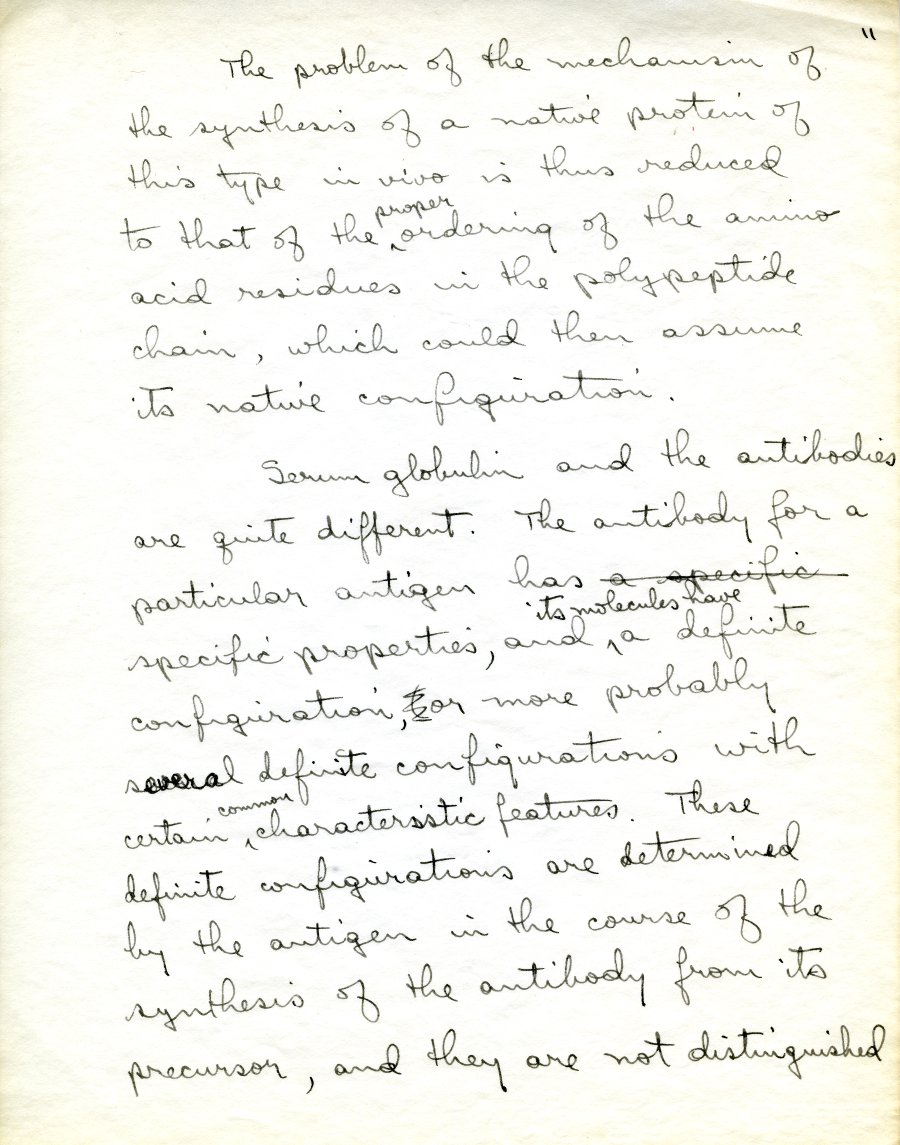 11
The problem of the mechanism of
the synthesis of a native protein of
this type in vivo is thus reduced
proper
to that of the ‸ordering of the amino
acid residues in the polypeptide
chain, which could then assume
its native configuration.
Serum globulin and the antibodies
are quite different. The antibody for a
particular antigen has a specific
its molecules have
specific properties, and ‸a definite
configuration, or more probably
several definite configurations with
common
certain ‸characteristic features. These
definite configurations are determined
by the antigen in the course of the
synthesis of the antibody from its
precursor, and they are not distinguished